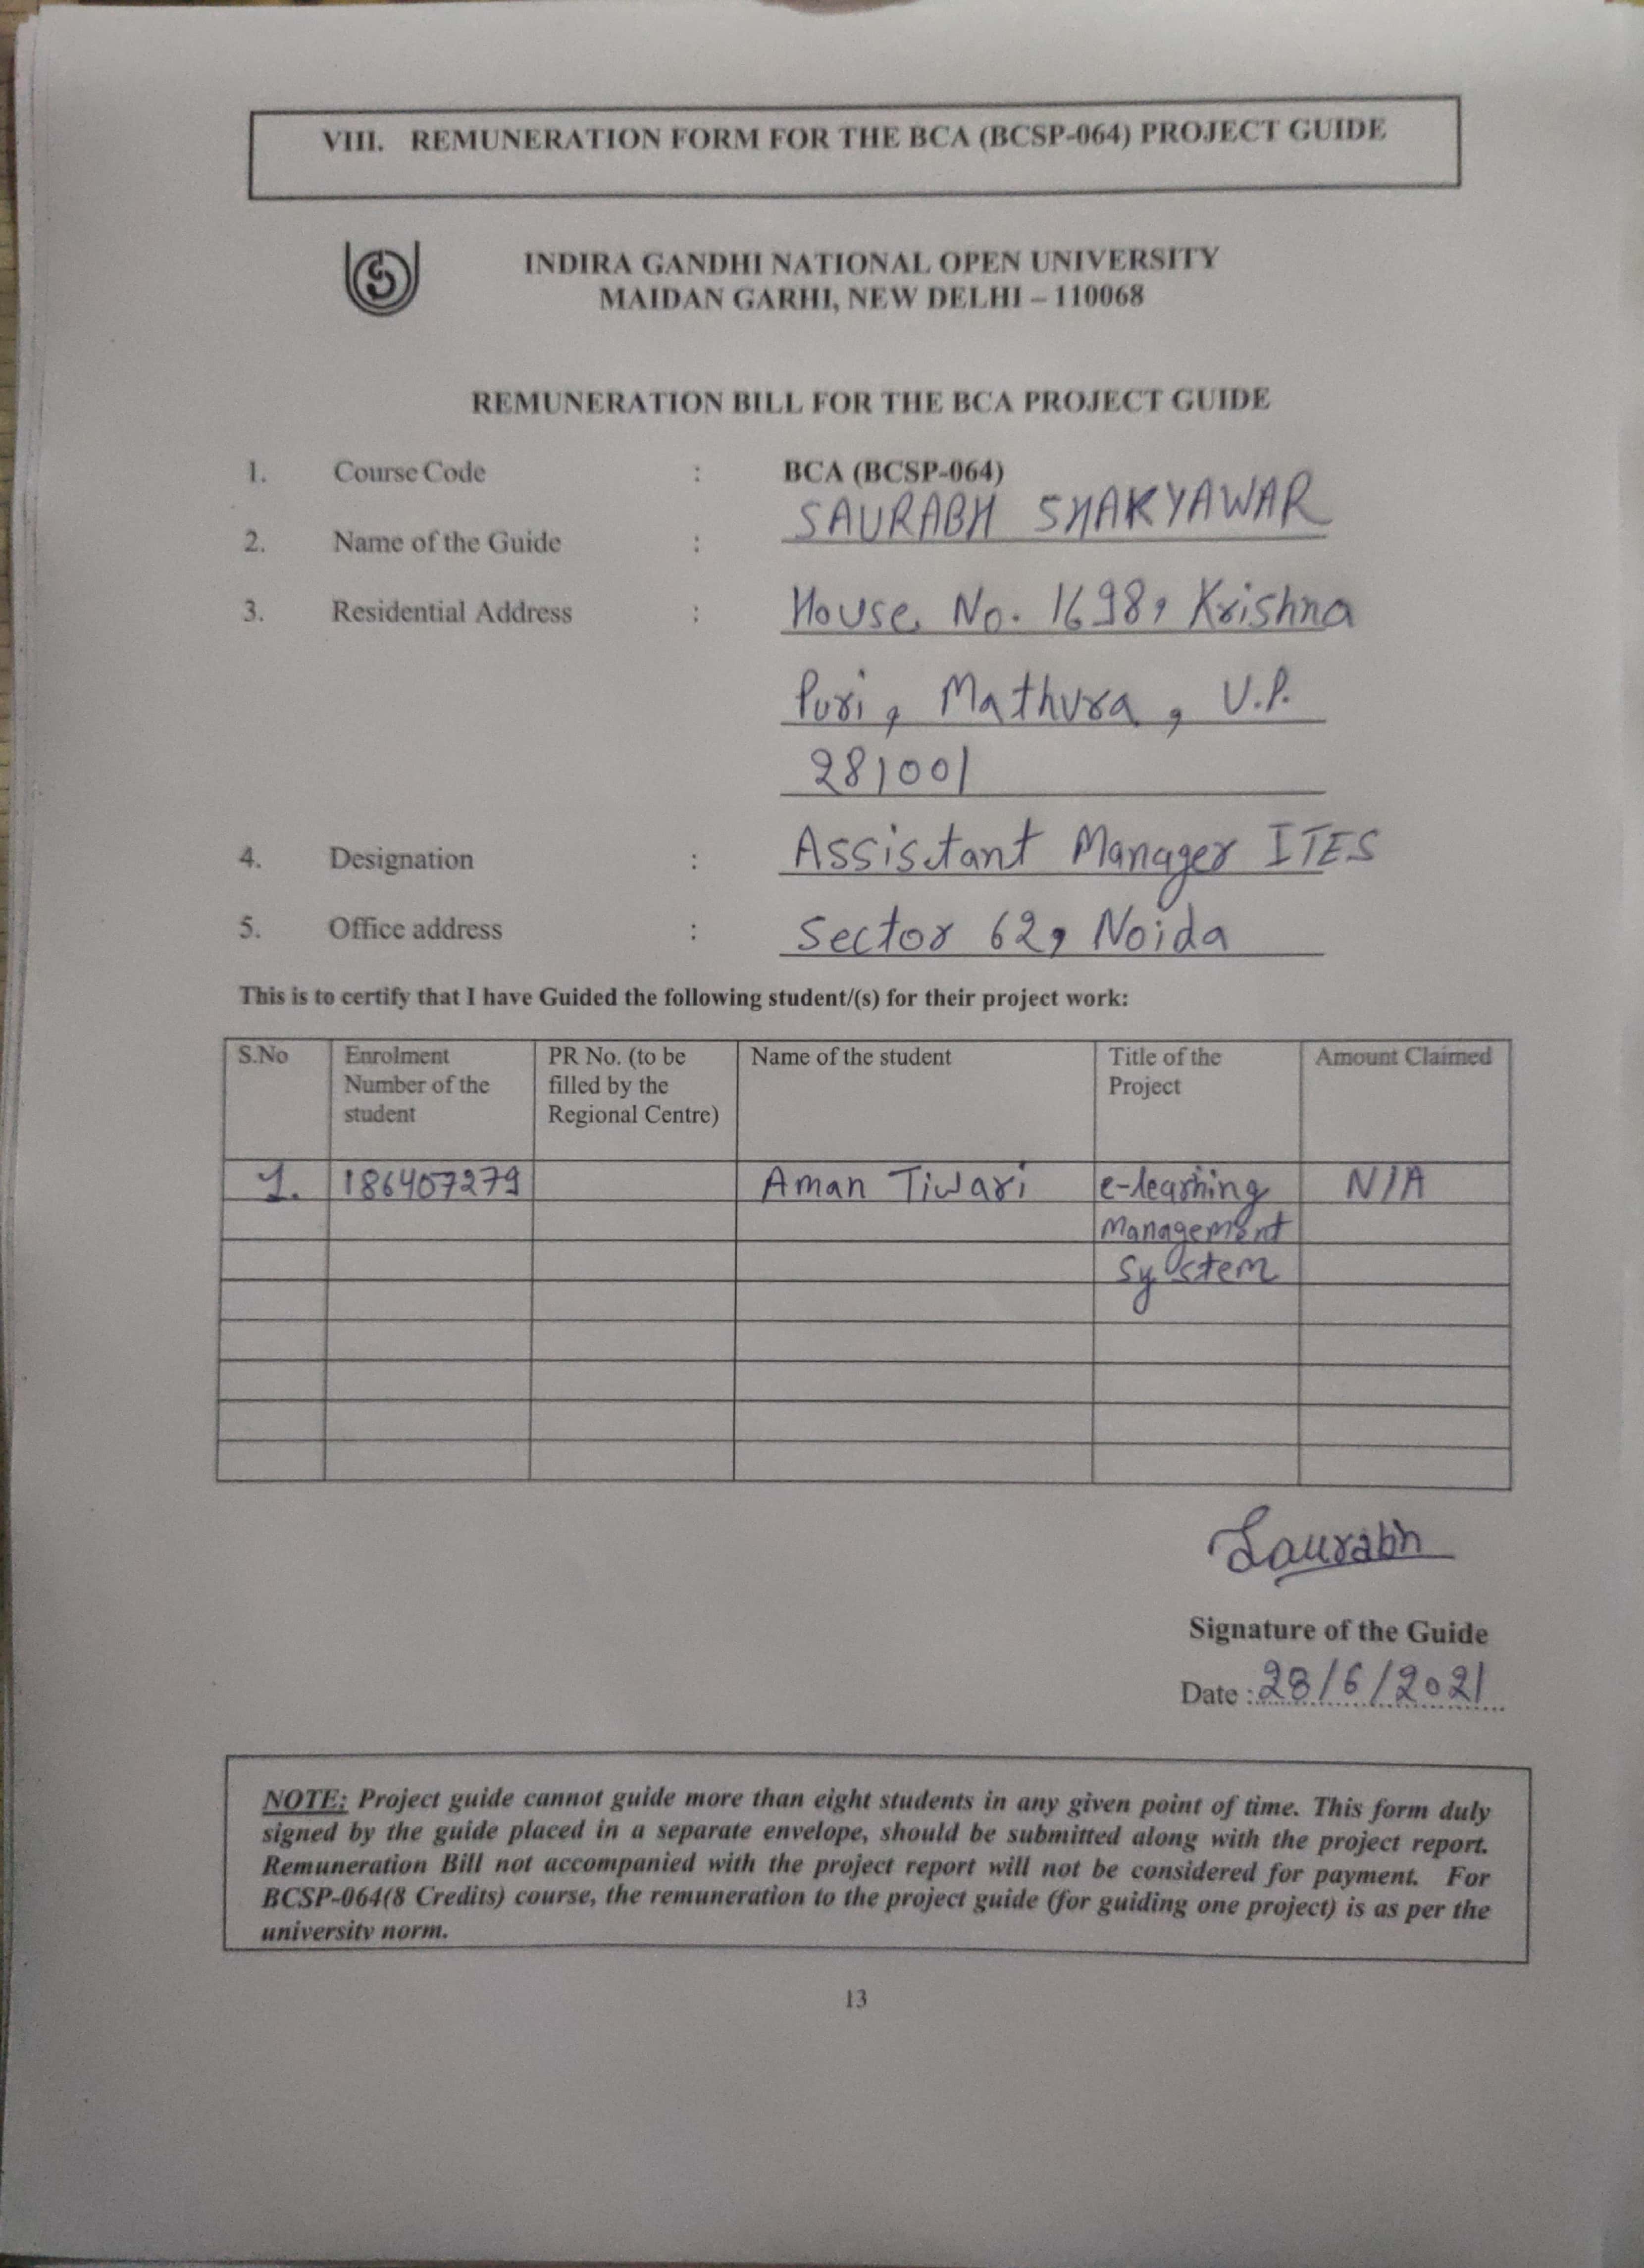 VIII. REMUNERATION FORM FOR THE BCA (BCSP-064) PROJECT GUIDE
INDIRA GANDHI NATIONAL OPEN UNIVERSITY
MAIDAN GARHI, NEW DELHI – 110068
REMUNERATION BILL FOR THE BCA PROJECT GUIDE
1. Course Code : BCA (BCSP-064)
2. Name of the Guide : SAURABH SHAKYAWAR
3. Residential Address : House No. 1698, Krishna
Puri, Mathura, U.P.
281001
4. Designation : Assistant Manager ITES
5. Office address : Sector 62, Noida
This is to certify that I have Guided the following student/(s) for their project work:
S.No Enrolment Number of the student PR No. (to be filled by the Regional Centre) Name of the student Title of the Project Amount Claimed
1. 186407279 Aman Tiwari e-learning N/A
Management
System
Saurabh
Signature of the Guide
Date : 28/6/2021
NOTE: Project guide cannot guide more than eight students in any given point of time. This form duly
signed by the guide placed in a separate envelope, should be submitted along with the project report.
Remuneration Bill not accompanied with the project report will not be considered for payment. For
BCSP-064(8 Credits) course, the remuneration to the project guide (for guiding one project) is as per the
university norm.
13